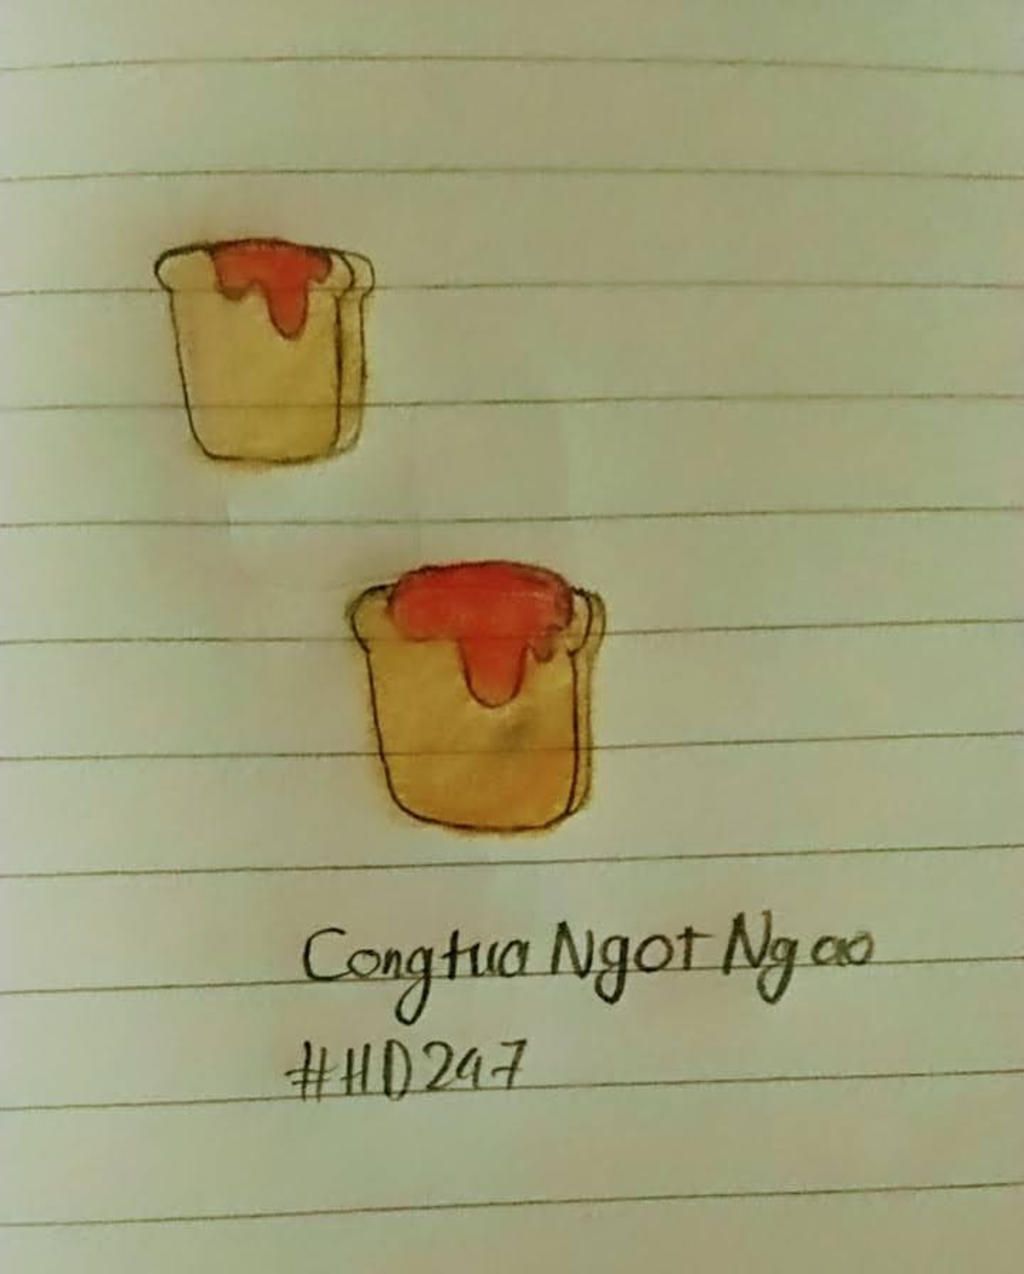 Congtua Ngot Ngao
#HD247